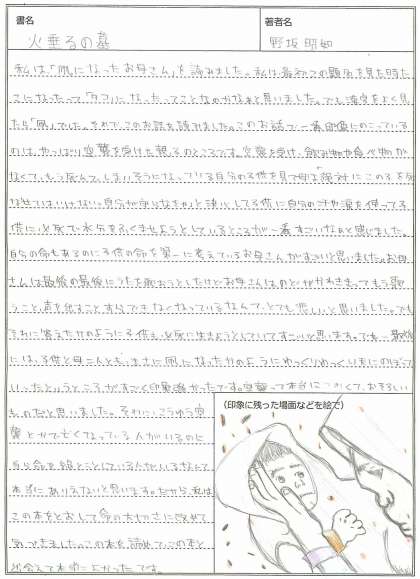 書名
著者名
火垂るの墓
野坂昭如
私は、「凧になったお母さん」を読みました。私は最初この題名を見た時た
こになったって「タコ」になったってことなのかなぁと思いました。でも漢字をよく見
たら「凧」でした。それで、このお話を読みました。このお話で一番印象にのこっている
のは、やっぱり空襲を受けた親子のところです。空襲を受け、飲み物や食べ物か
なくて、もう死んでしまいそうになっている自分の子供を見て母は絶対にこの子を死
なせてはいけない。自分が守らなきゃと決心してる子供に自分の汗や涙を使ってる
供に必死で水分をふくませようとしているところが一番すごいなぁと感じました。
自らの命もあるのに子供の命を第一に考えているお母さんがすごいと思いました。お母
さんは最後の最後にうたを歌おうとしたけどお母さんはのどがかわききってもう歌
うこと、声を出ることすらできなくなっているなんて、とても悲しいと思いました。でも
それに答えたかのように子供も必死に生きようとしていてすごいと思います。でも一番最後
には、子供と母二人とも、まさに凧になったかのようにゆっくりゆっくり天にのぼって
いったというところがすごく印象深かったです。空襲って本当にこわくて、おそろしい
ものだと思いました。それに、こうゆう空
襲とかで亡くなっている人がいるのに
自ら命を絶とことしている人がいるなんて
本当にありえないと思います。だから、私は
この本をとおして命の大切さに改めて
気づきました。この本を読めて、この本と
出会えて本当によかったです。
(印象に残った場面などを絵で)